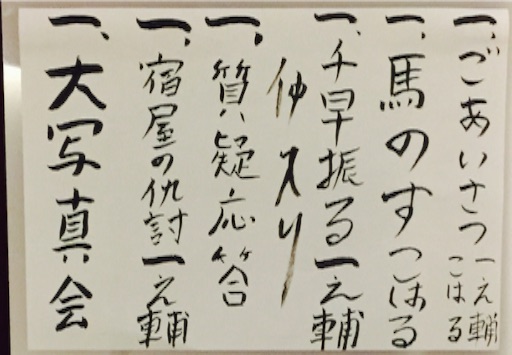 一、ごあいさつ 一之輔 こはる
一、馬のす こはる
一、千早振る 一之輔
仲入り
一、質疑応答
一、宿屋の仇討 一之輔
一、大写真会